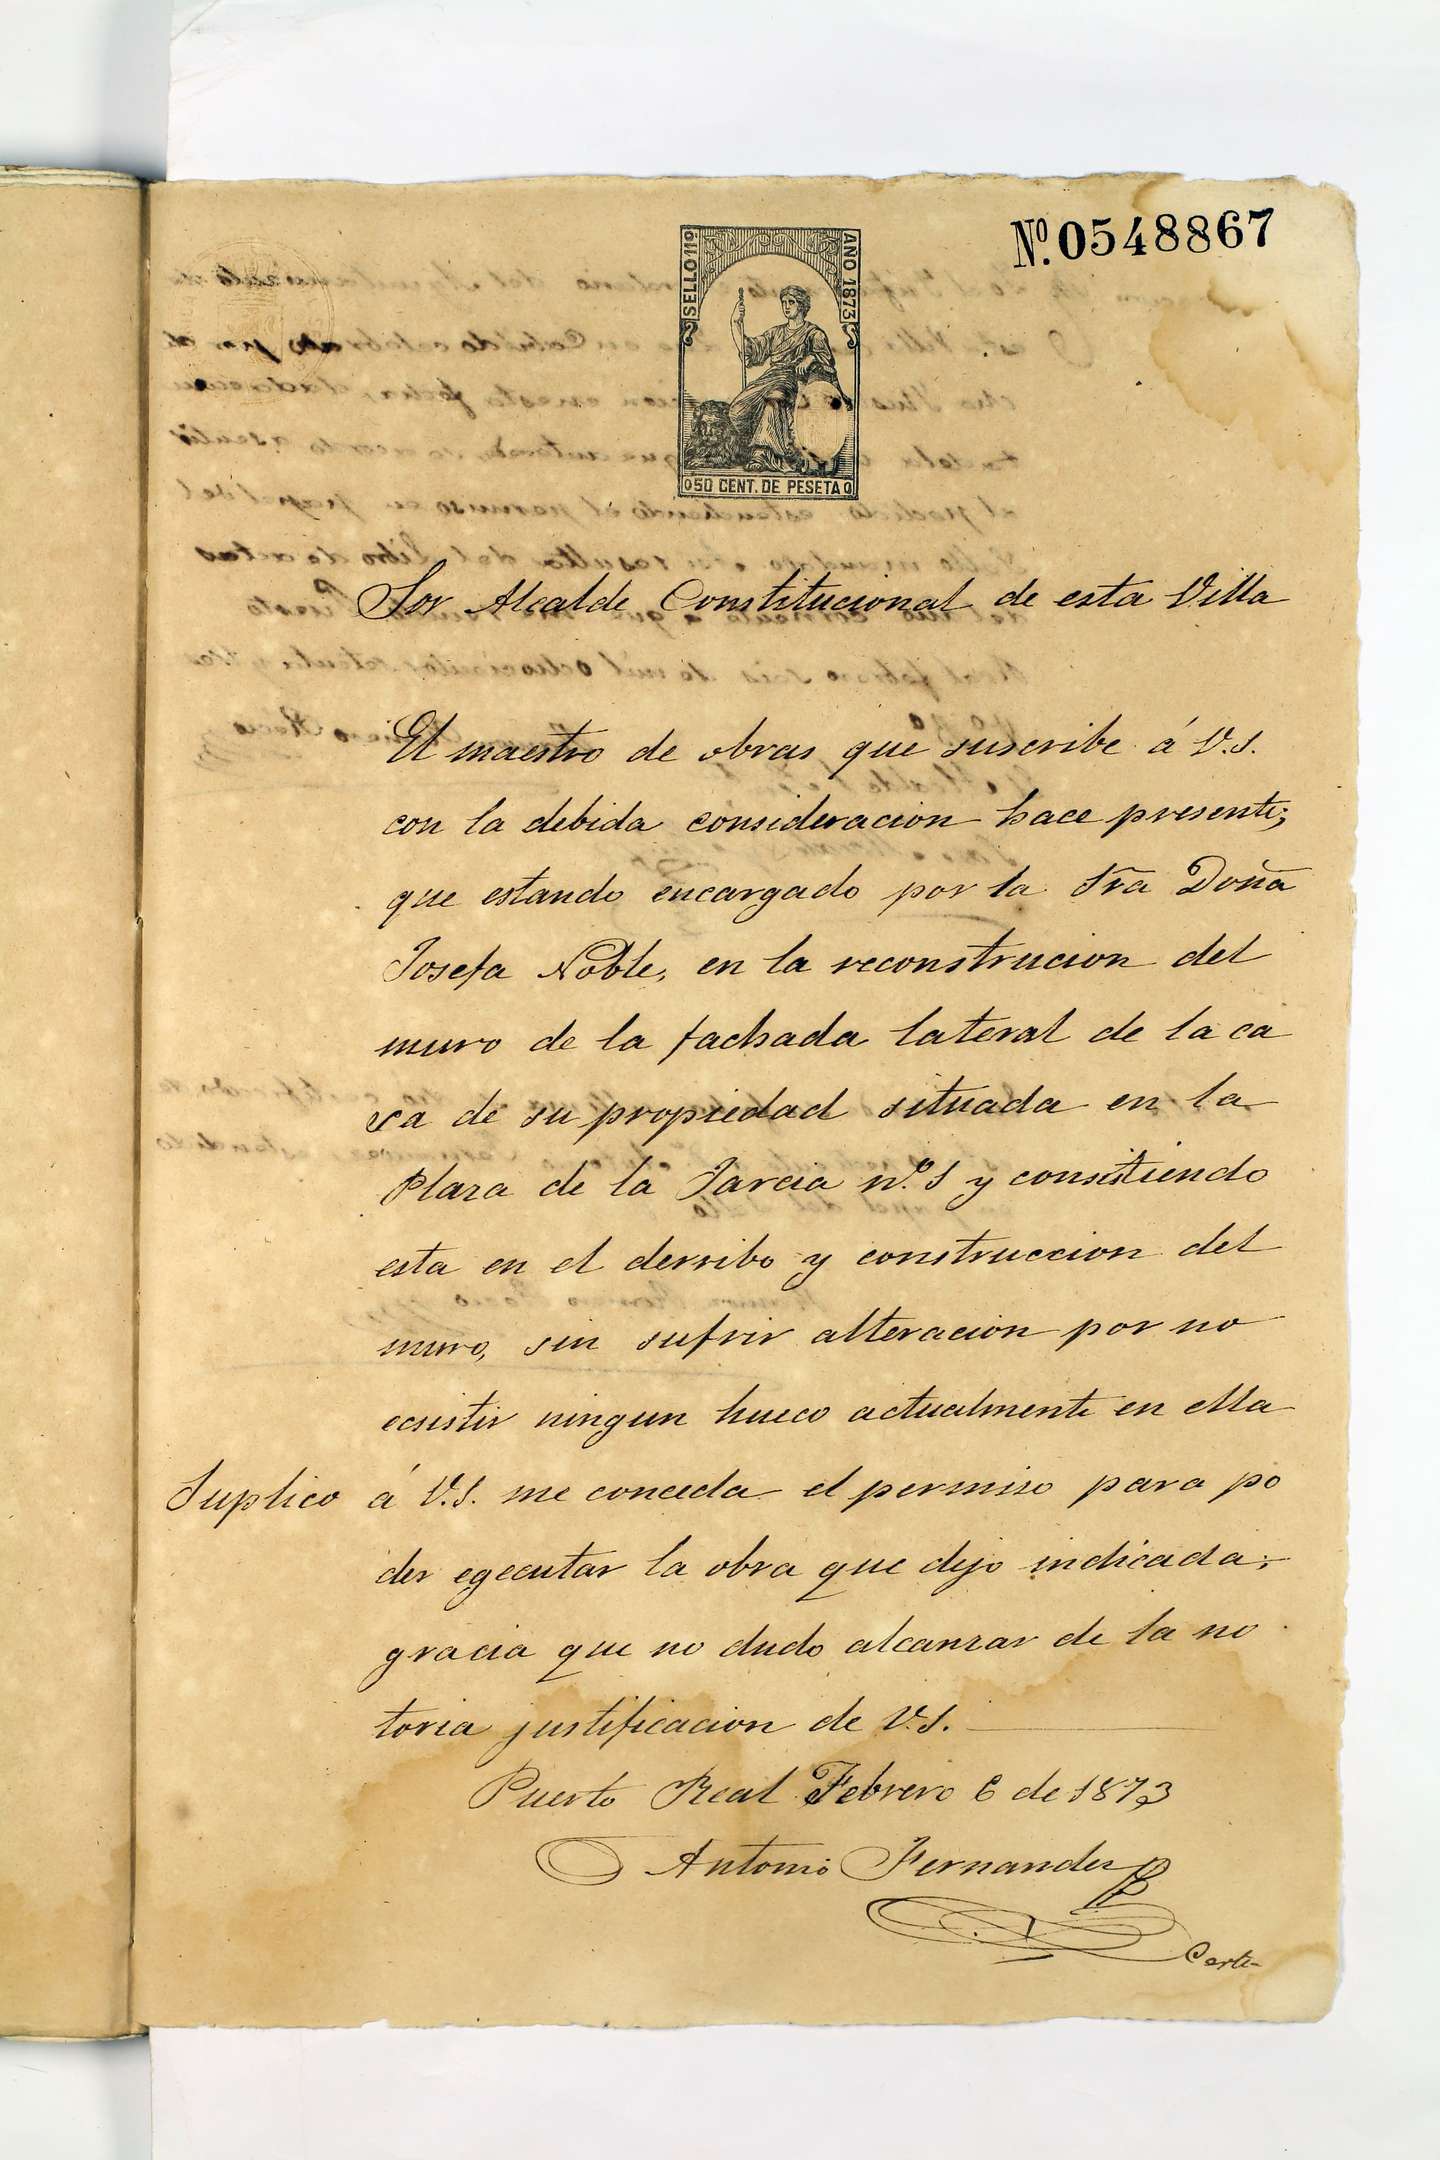 Nº. 0548867
SELLO 11º
AÑO 1873
50 CENT. DE PESETA
Sor Alcalde Constitucional de esta Villa
El maestro de obras que suscribe á V.S.
con la debida consideracion hace presente;
que estando encargado por la Sra Doña
Josefa Noble, en la reconstrucion del
muro de la fachada lateral de la ca
sa de su propiedad situada en la
Plaza de la Jarcia nº. 1 y consistiendo
esta en el derribo y construccion del
muro, sin sufrir alteracion por no
ecsistir ningun hueco actualmente en ella
Suplico á V.S. me conceda el permiso para po
der egecutar la obra que dejo indicada;
gracia que no dudo alcanzar de la no
toria justificacion de V.S.
Puerto Real Febrero 6 de 1873
Antonio Fernandez